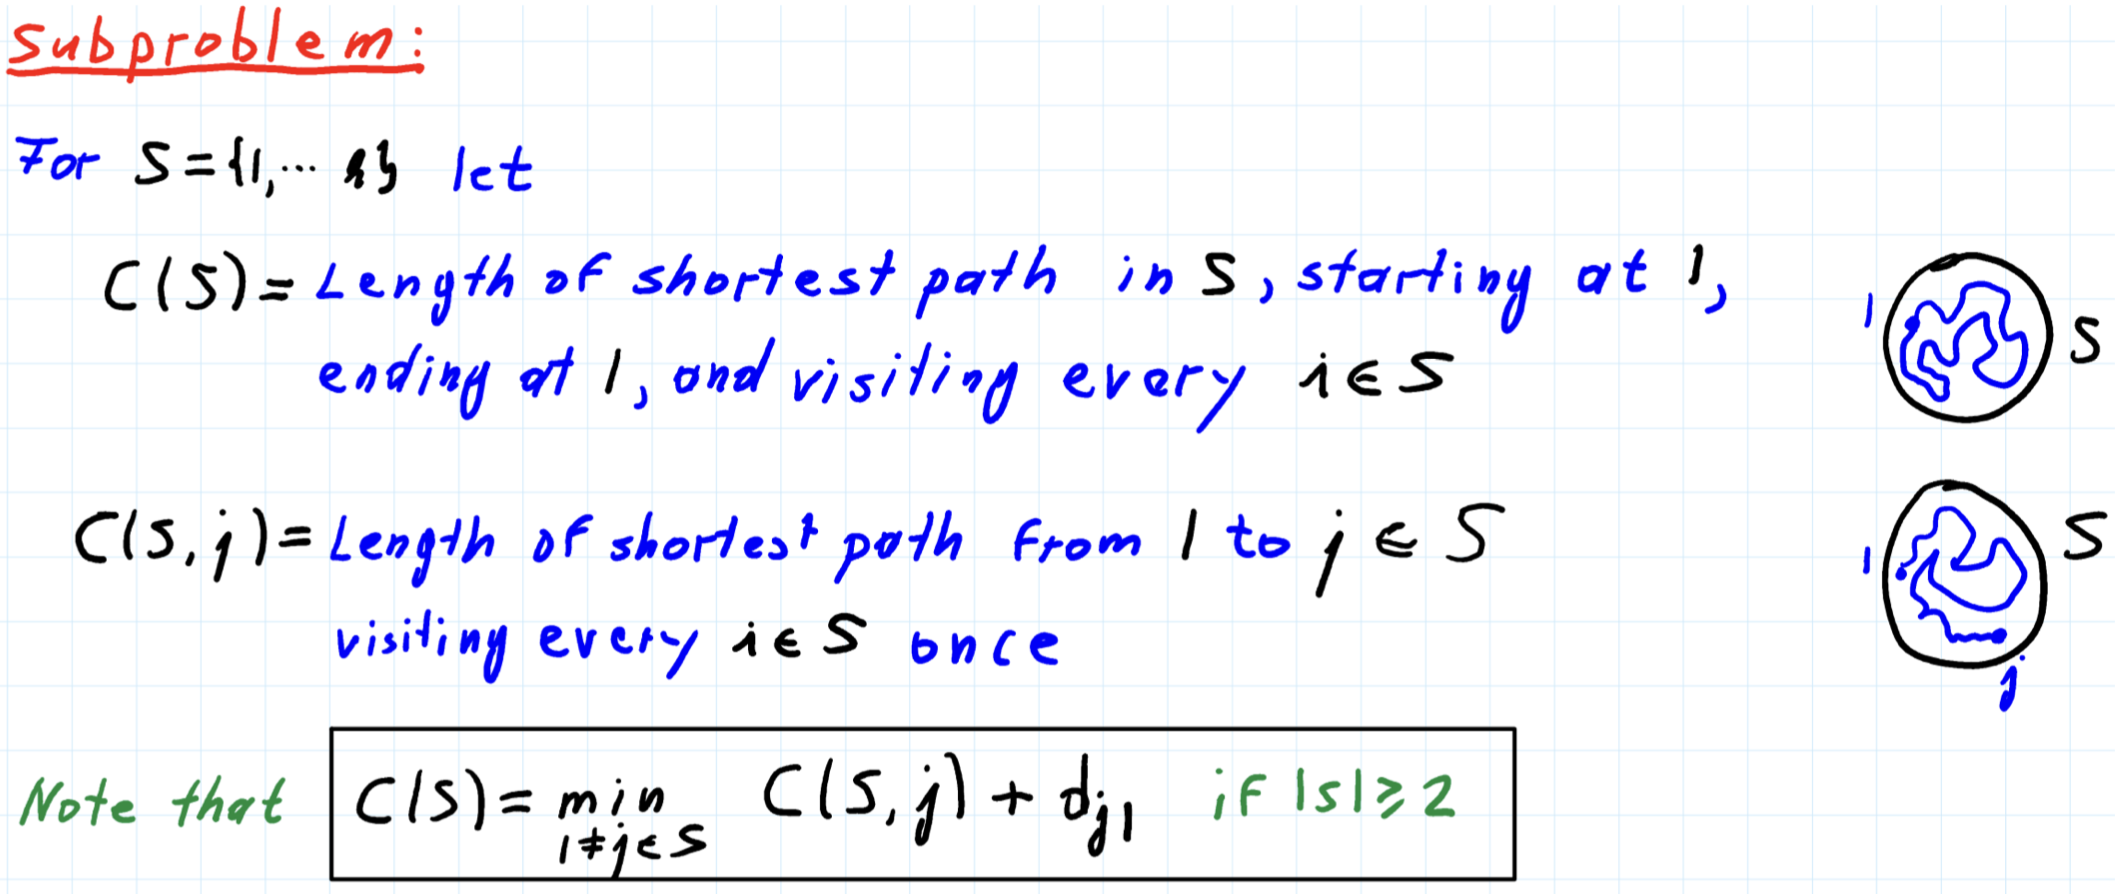 Subproblem:
For S = {1, ... n} let
C(S) = Length of shortest path in S, starting at 1,
ending at 1, and visiting every i ∈ S
1 S
C(S, j) = Length of shortest path from 1 to j ∈ S
visiting every i ∈ S once
1 S
j
Note that C(S) = min C(S, j) + d_{j1} if |S| ≥ 2
1 ≠ j ∈ S